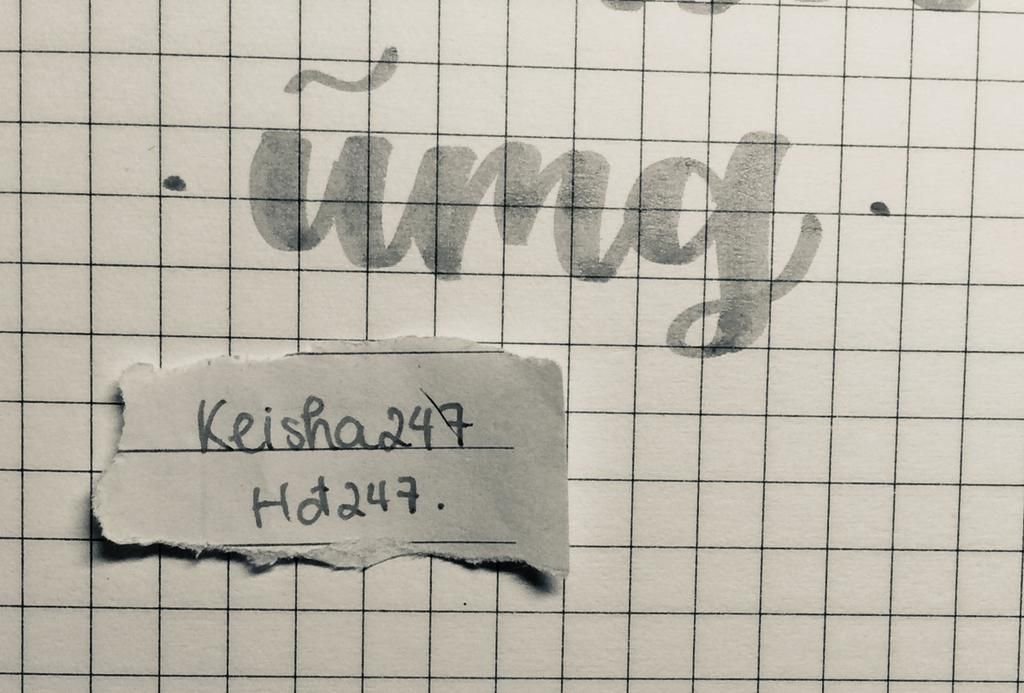 ũmg
Keisha247
Hot247.